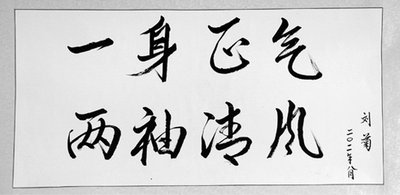 一身正气
两袖清风
刘菊
二〇二一年八月